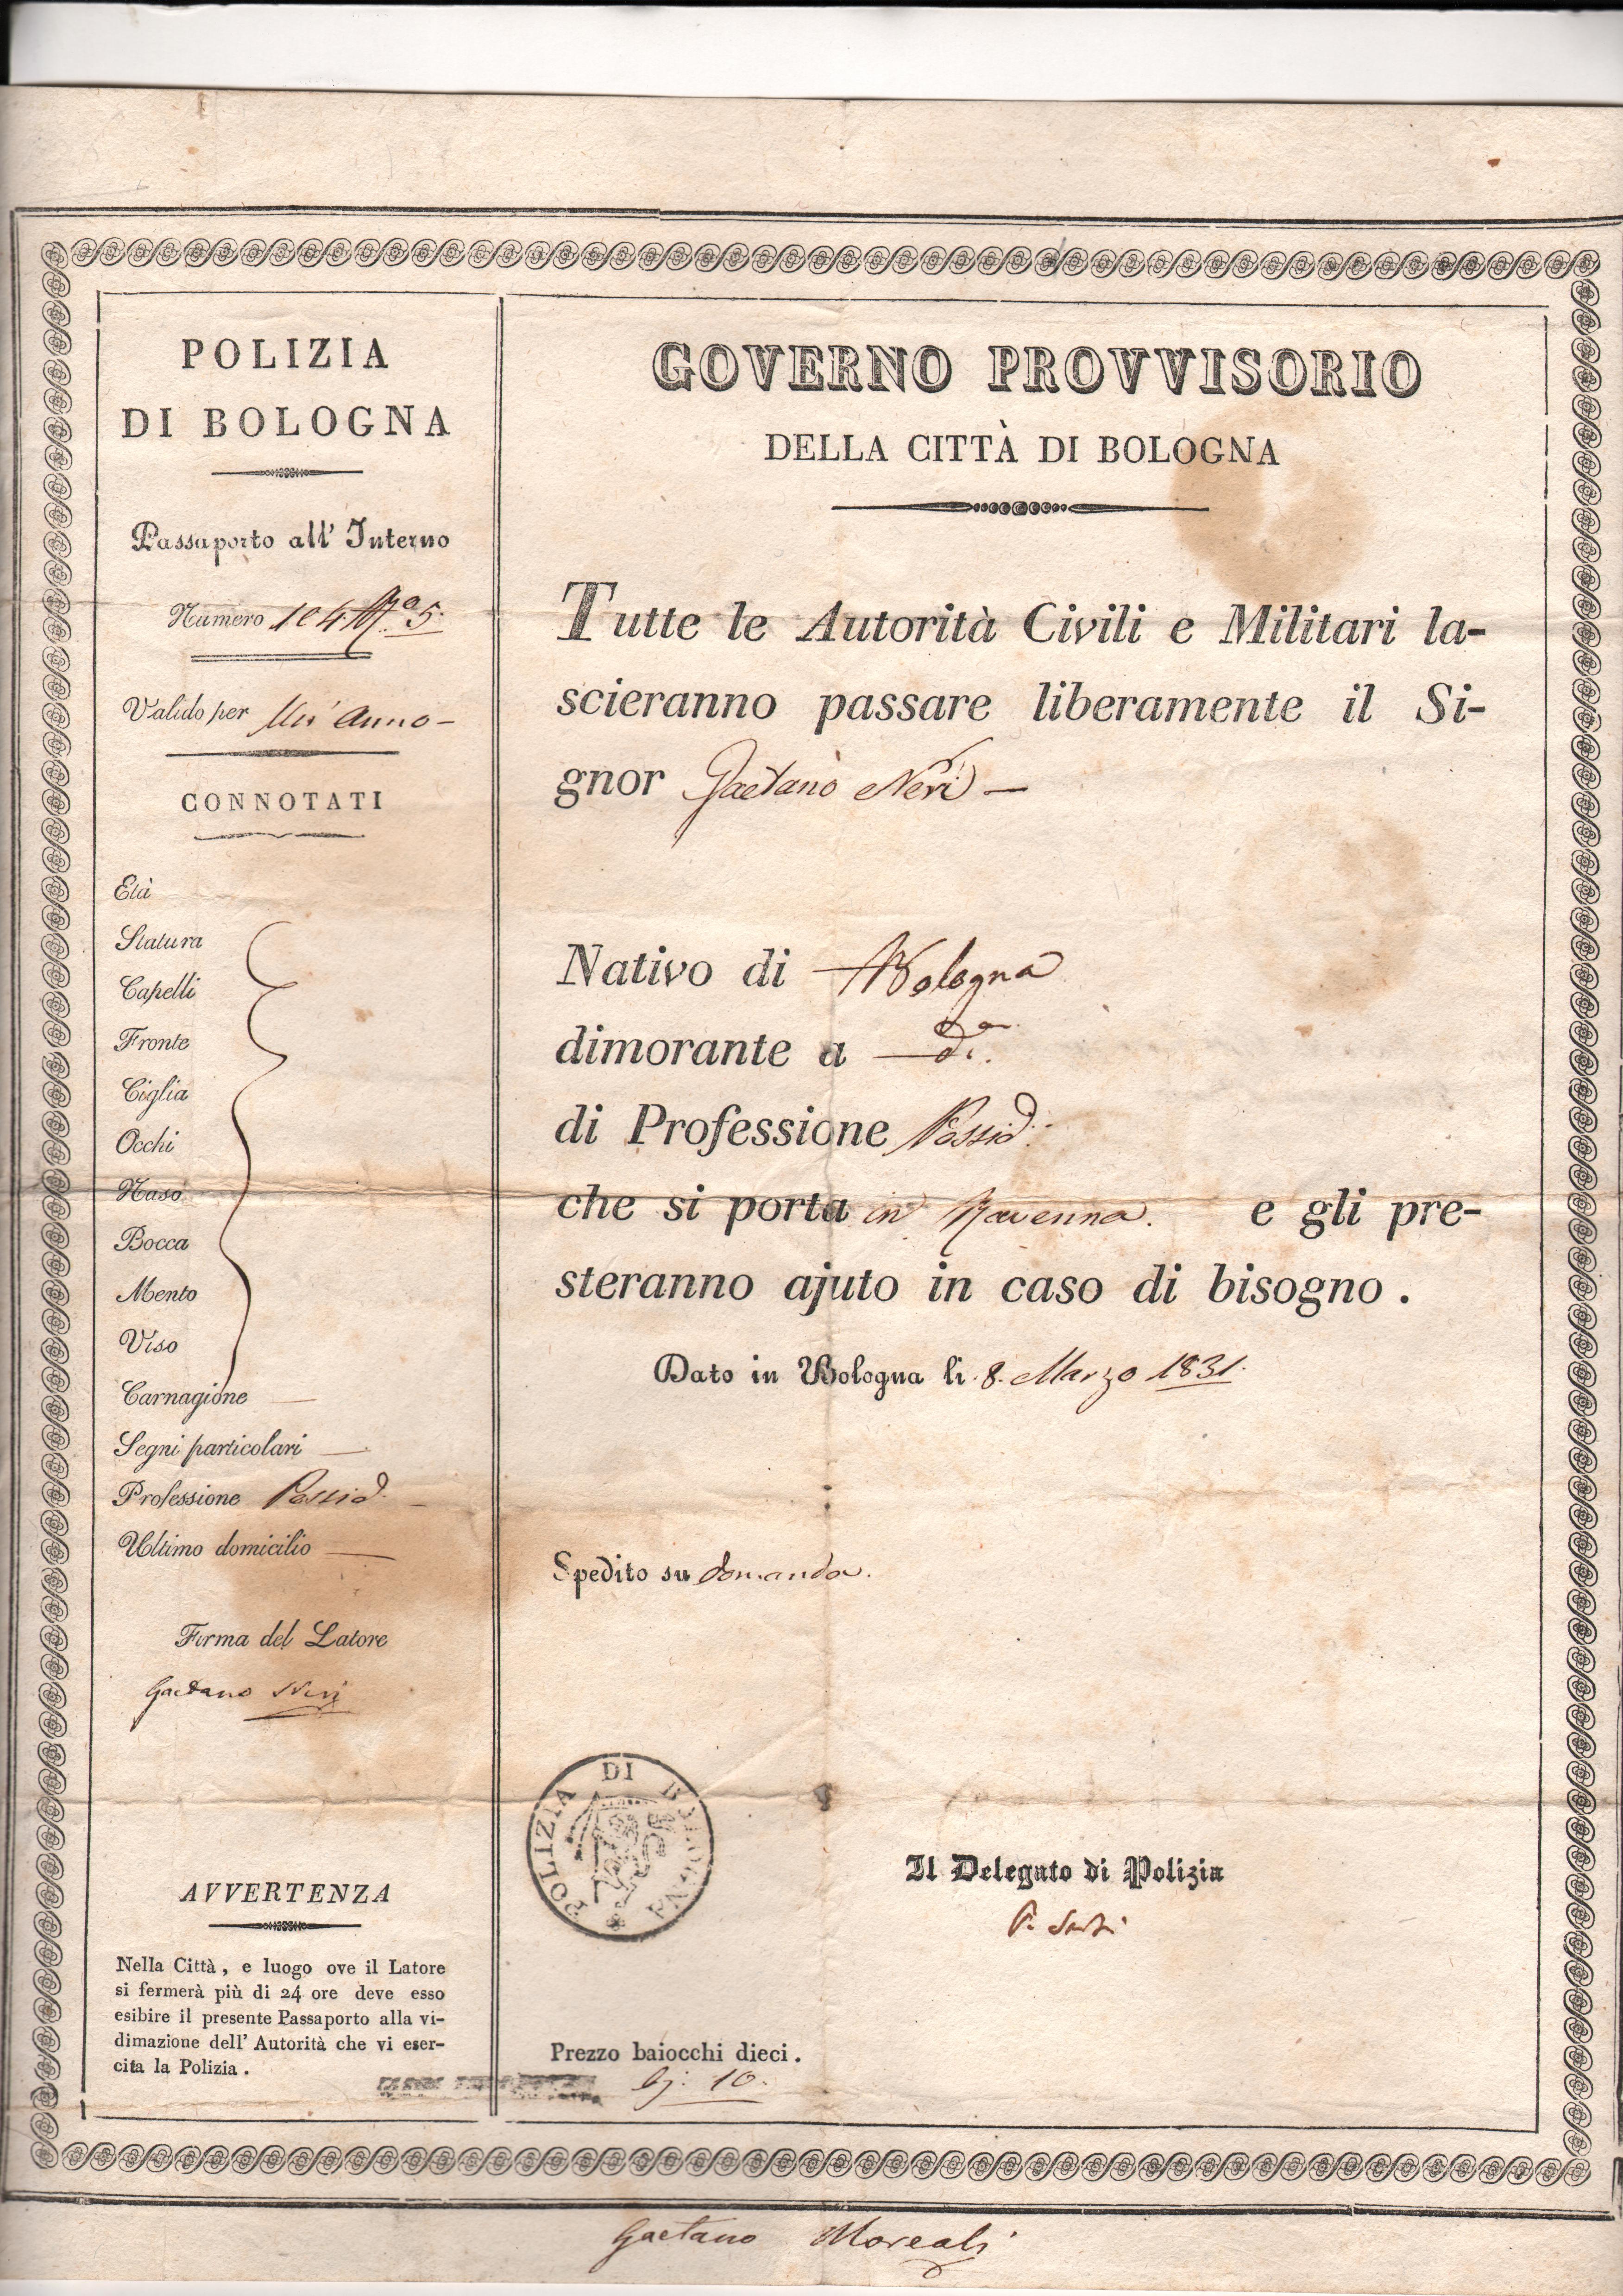 POLIZIA
DI BOLOGNA
Passaporto all' Interno
Numero
Valido per Un' anno -
CONNOTATI
Età
Statura
Capelli
Fronte
Ciglia
Occhi
Naso
Bocca
Mento
Viso
Carnagione
Segni particolari
Professione Possid.
Ultimo domicilio
Firma del Latore
Gaetano Neri
AVVERTENZA
Nella Città, e luogo ove il Latore
si fermerà più di 24 ore deve esso
esibire il presente Passaporto alla vi-
dimazione dell' Autorità che vi eser-
cita la Polizia.
GOVERNO PROVVISORIO
DELLA CITTÀ DI BOLOGNA
Tutte le Autorità Civili e Militari la-
scieranno passare liberamente il Si-
gnor Gaetano Neri -
Nativo di Bologna
dimorante a
di Professione Possid.
che si porta in Ravenna. e gli pre-
steranno ajuto in caso di bisogno.
Dato in Bologna li 8. Marzo 1831.
Spedito su domanda.
POLIZIA DI BOLOGNA
Il Delegato di Polizia
Prezzo baiocchi dieci.
bj. 10.
Gaetano Moreali